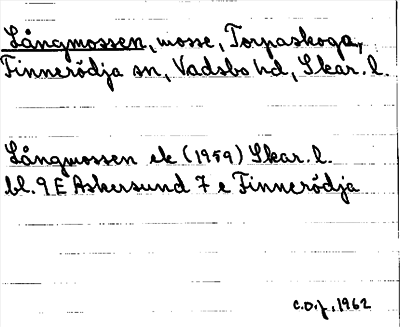 Långmossen, mosse, Torpaskoga,
Finnerödja sn, Vadsbo hd, Skar. l.
Långmossen ek (1959) Skar. l.
bl. 9 E Askersund 7 e Finnerödja
C.O.f., 1962